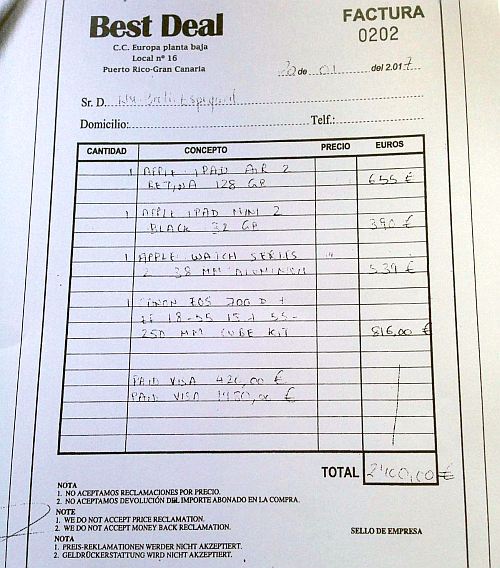 Best Deal
C.C. Europa planta baja
Local nº 16
Puerto Rico-Gran Canaria
FACTURA
0202
20 de 01 del 2.017
Sr. D.
Domicilio: Telf.:
CANTIDAD CONCEPTO PRECIO EUROS
1 APPLE IPAD AIR 2
RETINA 128 GB 655 €
1 APPLE IPAD MINI 2
BLACK 32 GB 390 €
1 APPLE WATCH SERIES
2 38 MM ALUMINIUM 539 €
1 CANON EOS 700 D +
18-55 IS + 55-
250 MM CUBE KIT 816,00 €
PAID VISA 420,00 €
PAID VISA 1980,00 €
TOTAL 2400,00 €
NOTA
1. NO ACEPTAMOS RECLAMACIONES POR PRECIO.
2. NO ACEPTAMOS DEVOLUCIÓN DEL IMPORTE ABONADO EN LA COMPRA.
NOTE
1. WE DO NOT ACCEPT PRICE RECLAMATION.
2. WE DO NOT ACCEPT MONEY BACK RECLAMATION.
NOTA
1. PREIS-REKLAMATIONEN WERDER NICHT AKZEPTIERT.
2. GELDRÜCKERSTATTUNG WIRD NICHT AKZEPTIERT.
SELLO DE EMPRESA